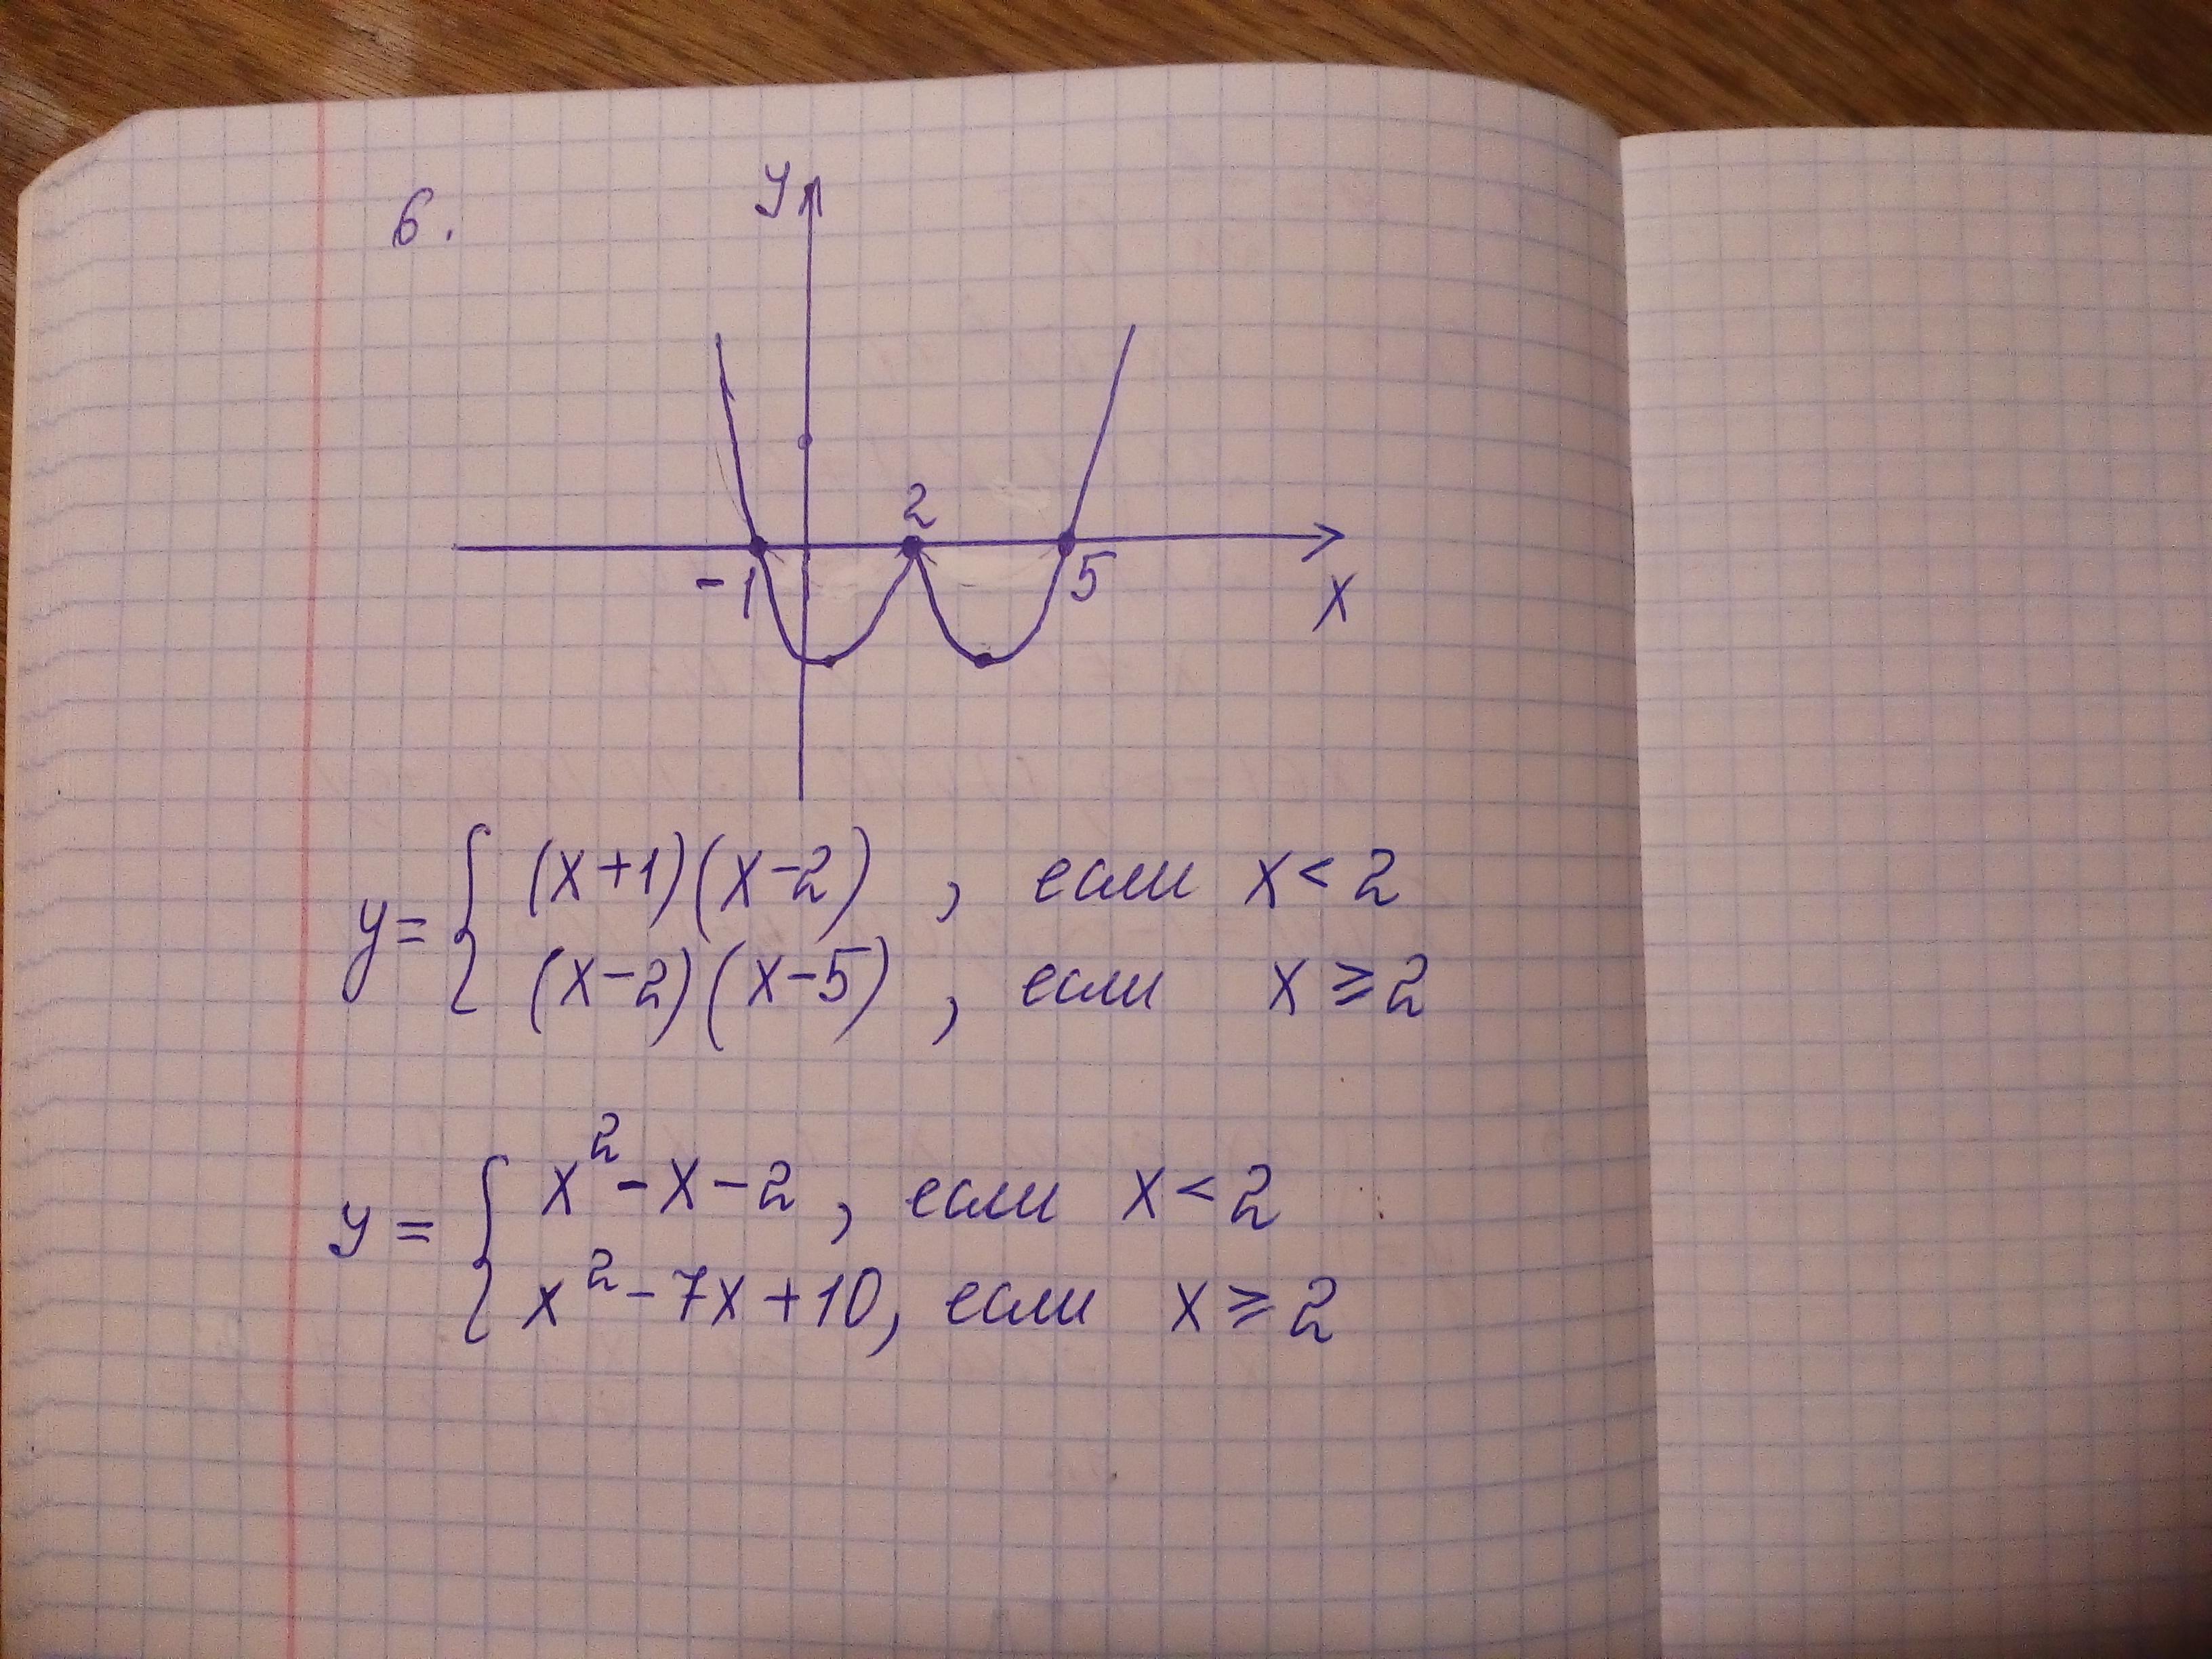 6.
y
2
-1
5
x
y = { (x+1)(x-2) , если x < 2
(x-2)(x-5) , если x ⩾ 2
y = { x² - x - 2 , если x < 2
x² - 7x + 10, если x ⩾ 2